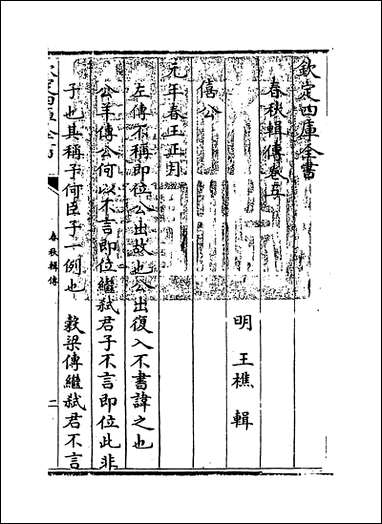 欽定四庫全書
春秋輯傳卷五
明 王樵 輯
僖公
元年春王正月
左傳不稱即位公出故也公出復入不書諱之也
公羊傳公何以不言即位繼弑君子不言即位此非
子也其稱子何臣子一例也 穀梁傳繼弑君不言
春秋輯傳